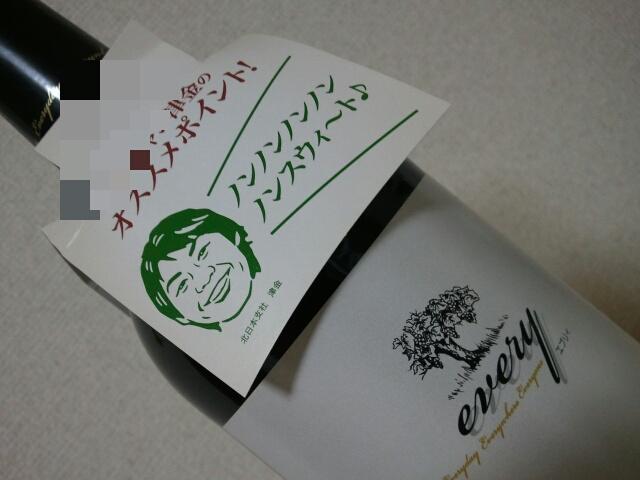 津金の
オススメポイント!
ノンノンノンノン
ノンスウィ〜ト♪
北日本支社 津金
every
エブリィ
Everyday Everywhere Everyone